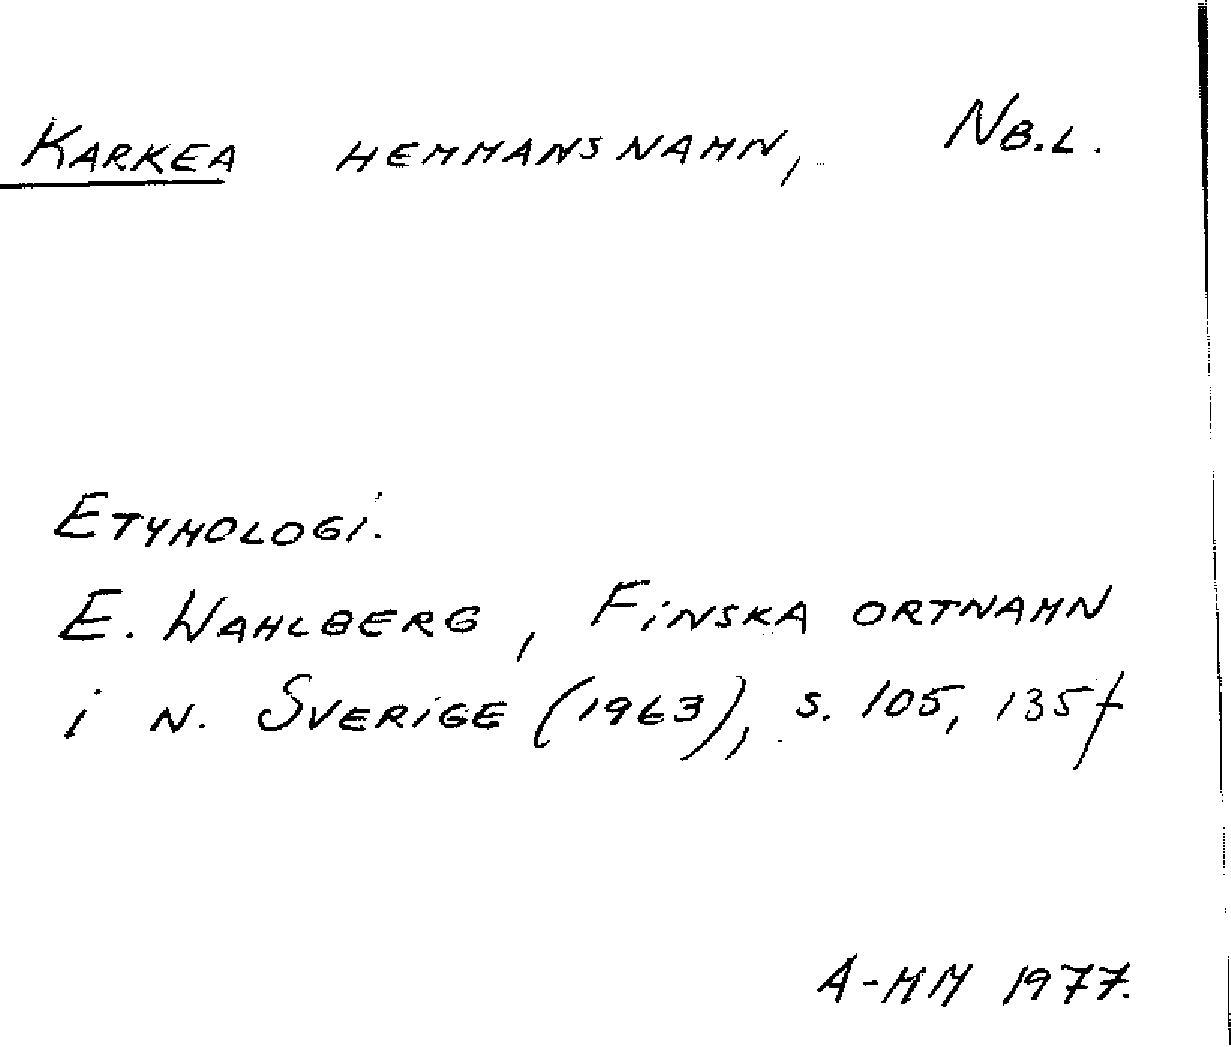 KARKEA HEMMANSNAMN, NB.L.
ETYMOLOGI.
E. WAHLBERG, FINSKA ORTNAMN
i N. SVERIGE (1963), S. 105, 135f
A-MM 1977.